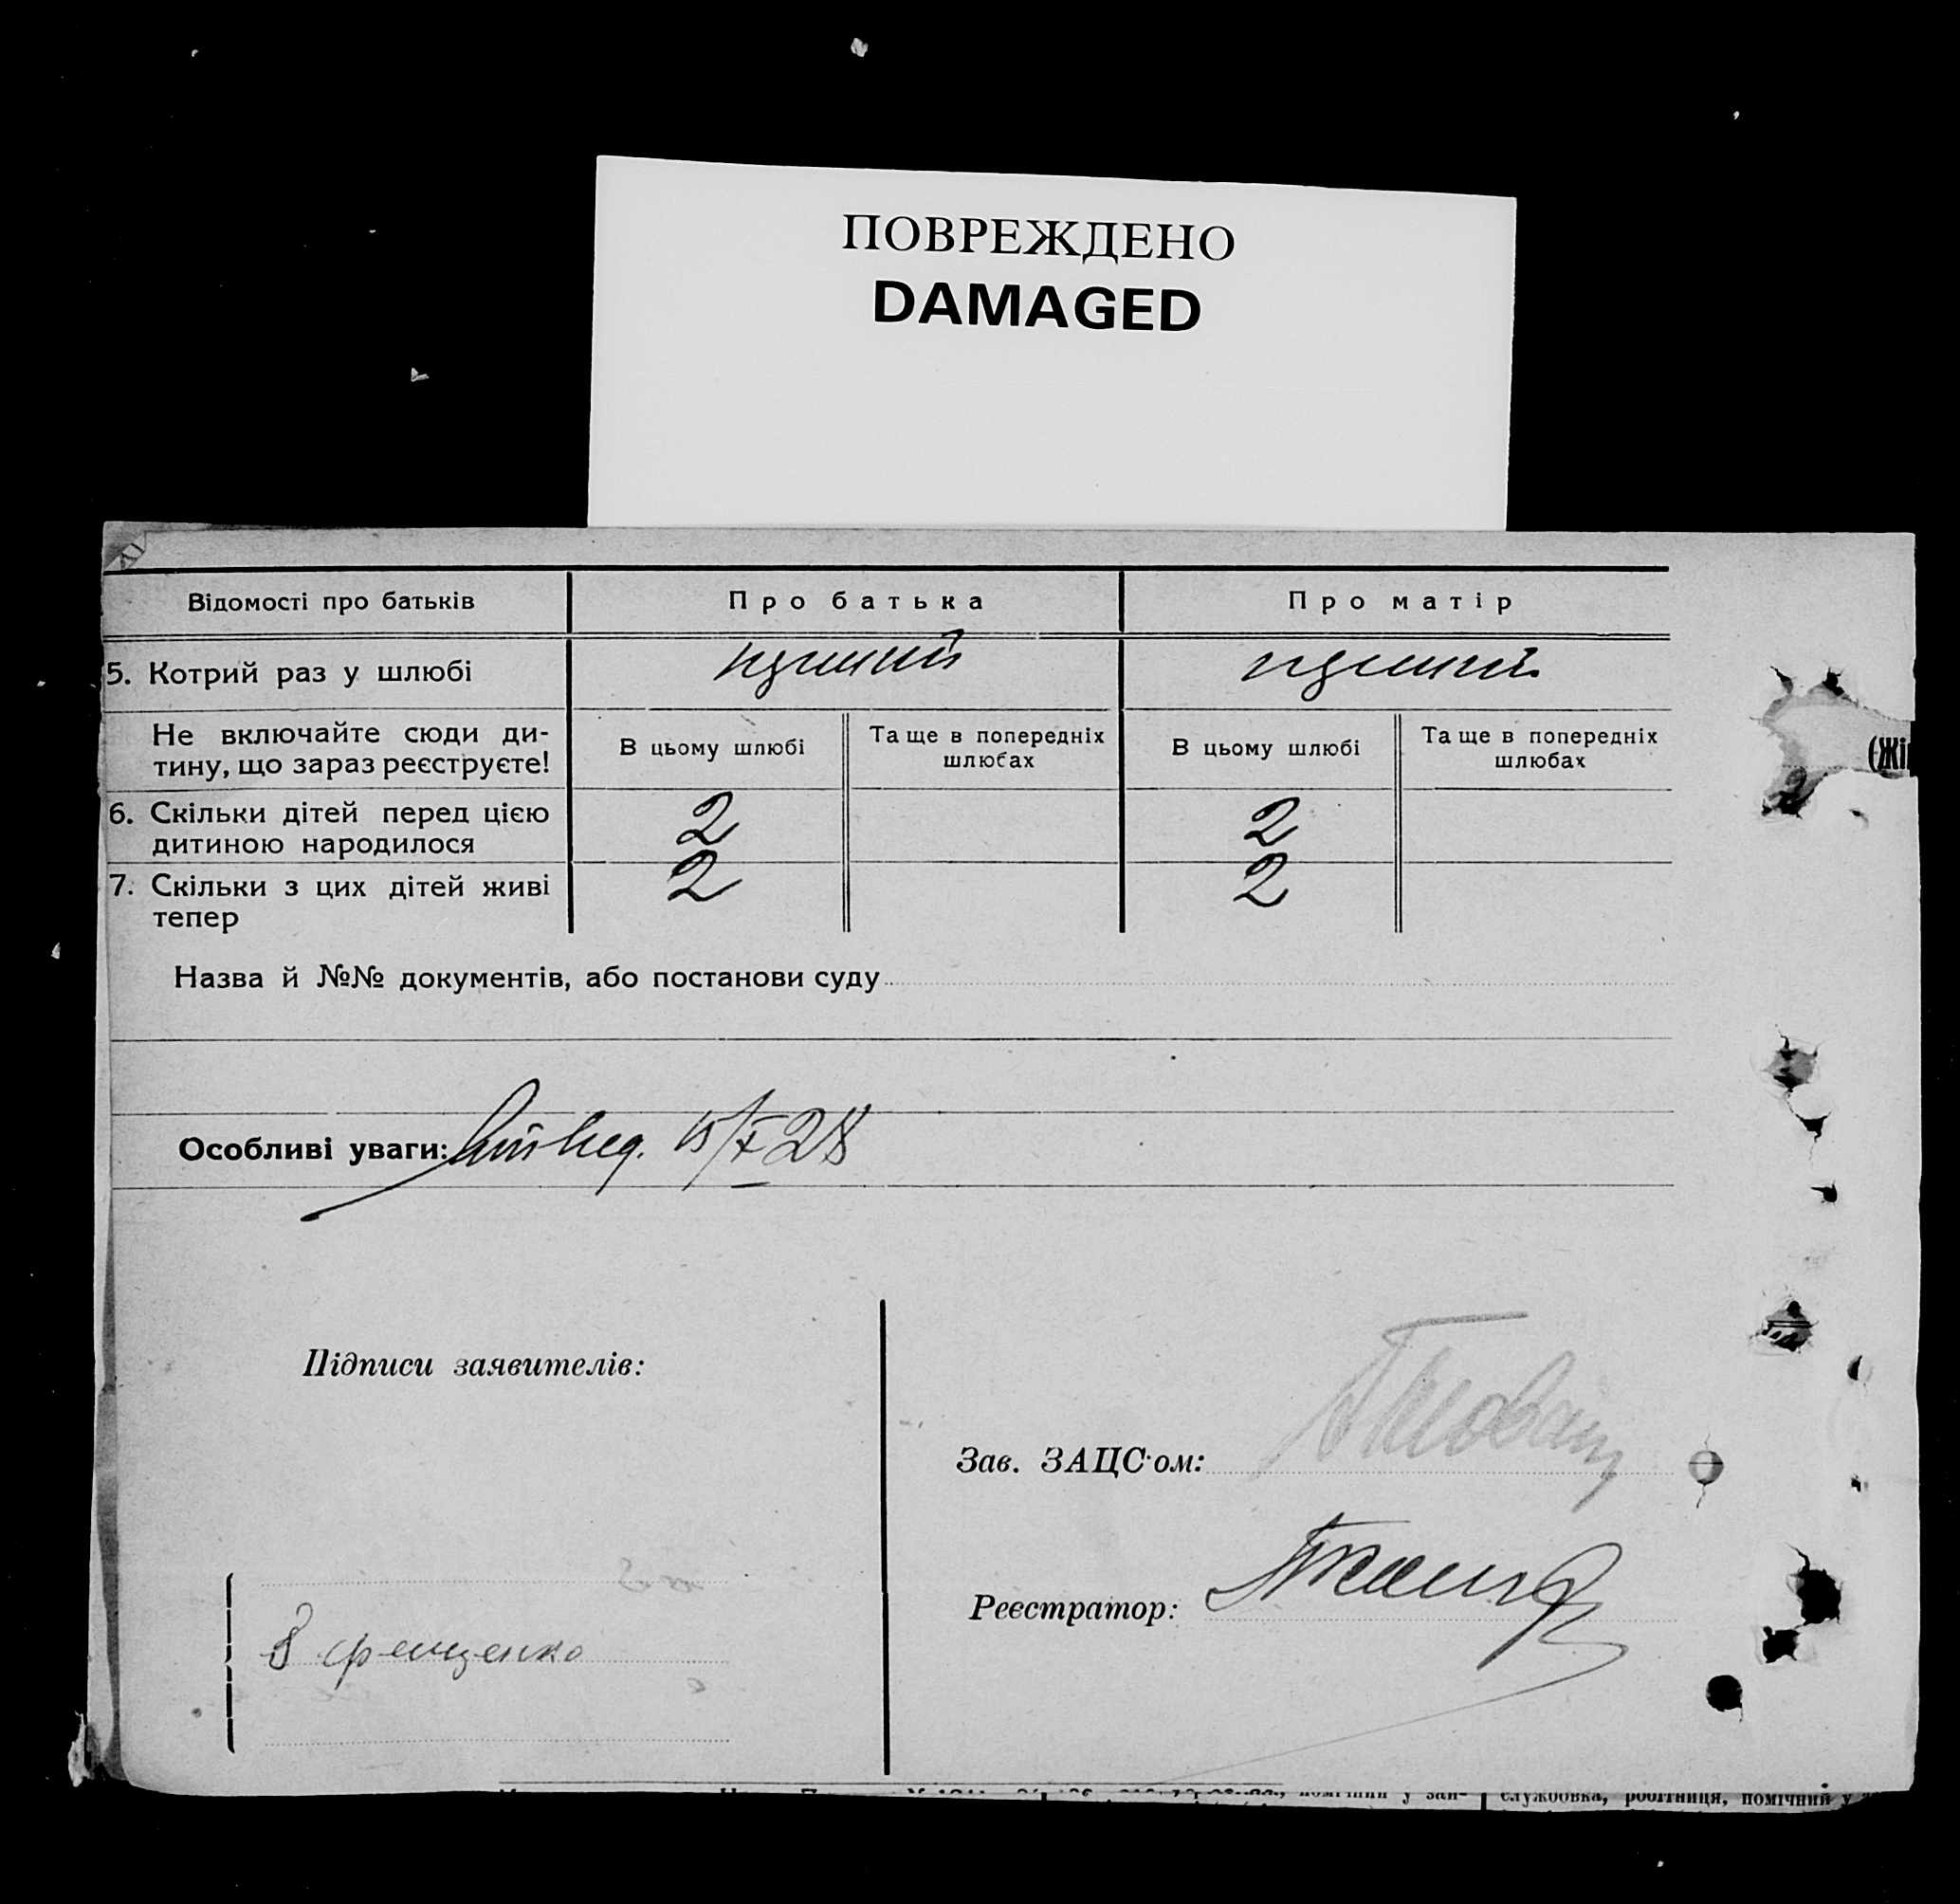 ПОВРЕЖДЕНО
DAMAGED
Відомості про батьків
Про батька
Про матір
5. Котрий раз у шлюбі
Не включайте сюди ди-
тину, що зараз реєструєте!
В цьому шлюбі
Та ще в попередніх
шлюбах
В цьому шлюбі
Та ще в попередніх
шлюбах
6. Скільки дітей перед цією
дитиною народилося
2
2
7. Скільки з цих дітей живі
тепер
2
2
Назва й №№ документів, або постанови суду
Особливі уваги: 15/X 28
Підписи заявителів:
Зав. ЗАЦС'ом:
Реєстратор:
(Жі
службовка, робітниця, помічний у